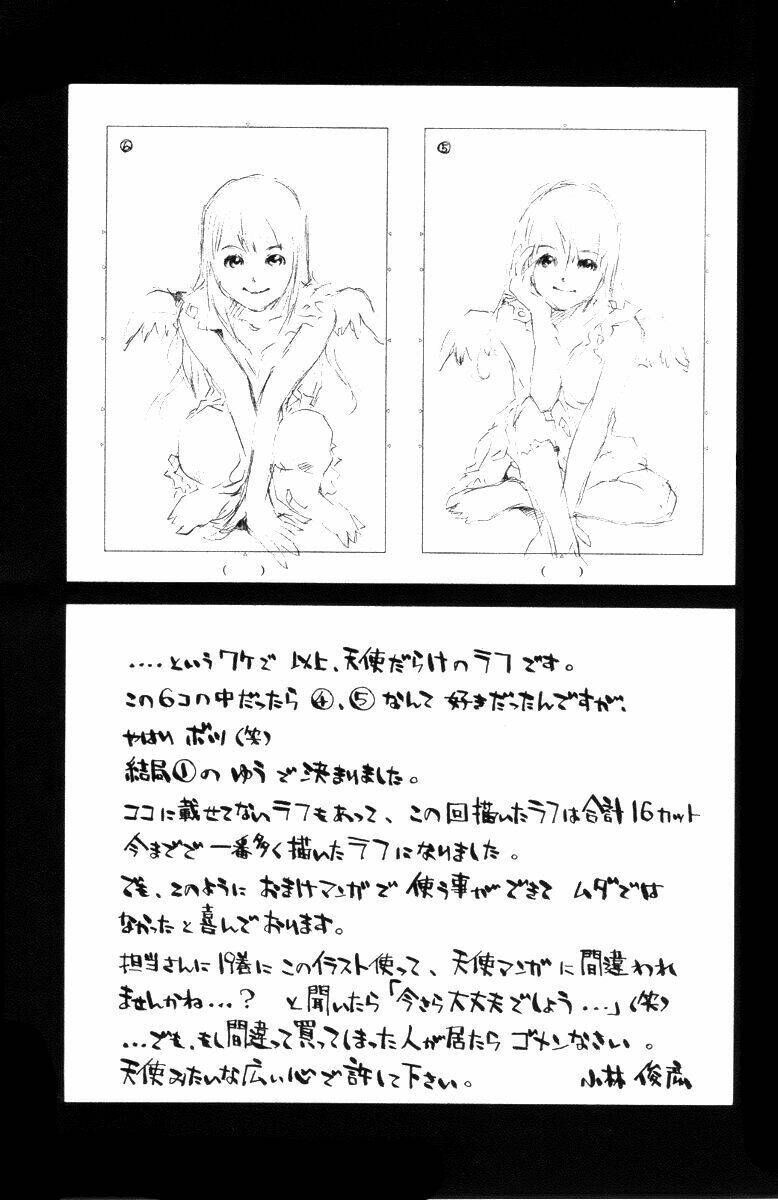 ⑥
⑤
(　　)
(　　)
‥‥というワケで 以上、天使だらけのラフです。
この6コの中だったら ④、⑤なんて 好きだったんですが、
やはり ボツ(笑)
結局①の ゆう で決まりました。
ココに載せてないラフもあって、この回描いたラフは合計16カット
今までで 一番多く描いたラフになりました。
でも、このように おまけマンガで 使う事ができて ムダでは
なかったと喜んでおります。
担当さんに19巻にこのイラスト使って、天使マンガに間違われ
ませんかね…？ と聞いたら「今さら大丈夫でしょう…」(笑)
…でも、もし間違って買ってしまった人が居たら ゴメンなさい。
天使みたいな広い心で許して下さい。 小林 俊彦